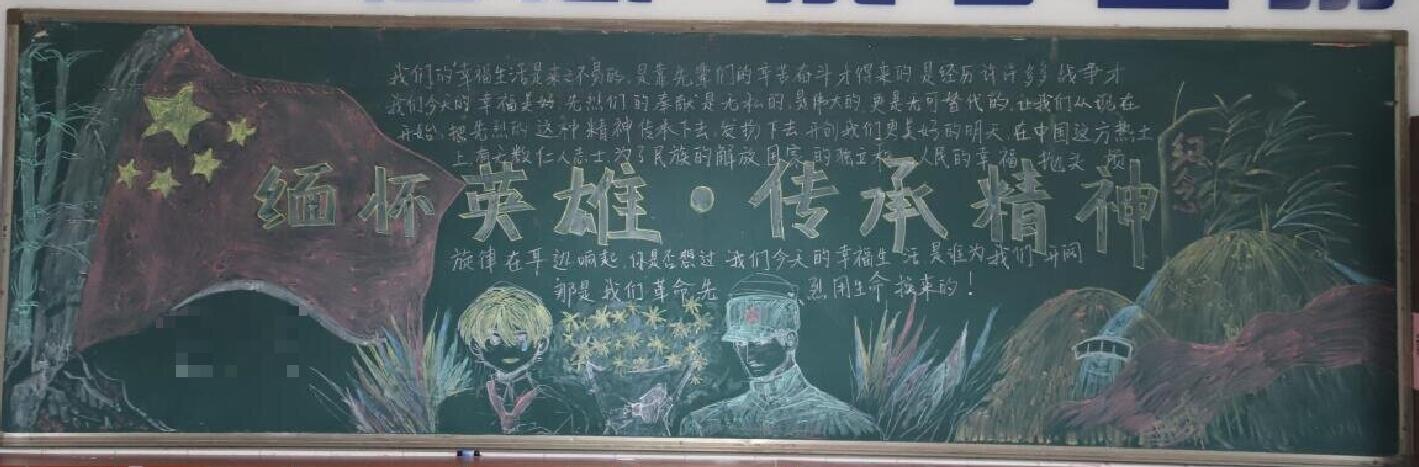 我们的幸福生活是来之不易的,是靠先辈们的辛苦奋斗才得来的是经历许许多多战争才
我们今天的幸福是给先烈们的奉献是无私的,是伟大的更是无可替代的,让我们从现在
开始,把先烈的这种精神传承下去,发扬下去,开创我们更美好的明天,在中国这方热土
上,有无数仁人志士,为了民族的解放国家的独立和人民的幸福抛头
纪念
缅怀英雄·传承精神
旋律在耳边响起,你是否想过 我们今天的幸福生活是谁为我们开阔
那是我们革命先烈用生命换来的!